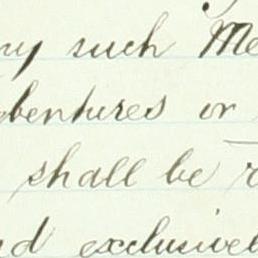 ny such Me
ebentures or
shall be r
nd exclusivel